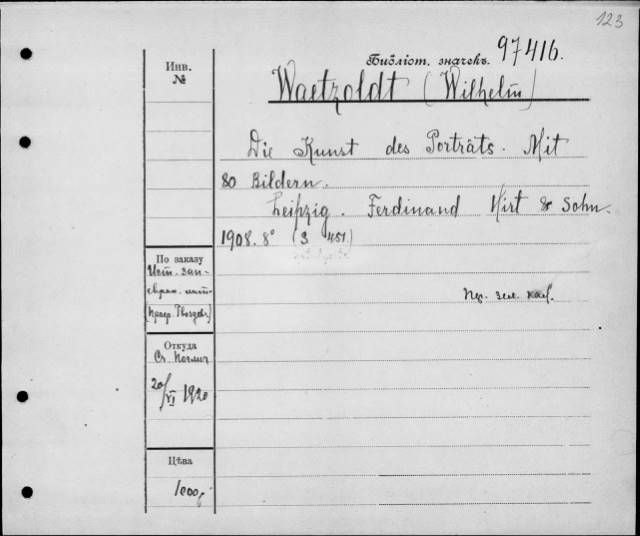 123
Инв.
№
Библіот. значекъ. 97416.
Waetzoldt (Wilhelm)
Die Kunst des Porträts. Mit
80 Bildern.
Leipzig. Ferdinand Hirt & Sohn.
1908. 8° (3 451.)
По заказу
Ист. зап-
(проф. Гвоздевъ)
Пер. зел. каб.
Откуда
20/VI 1920
Цѣна
1000